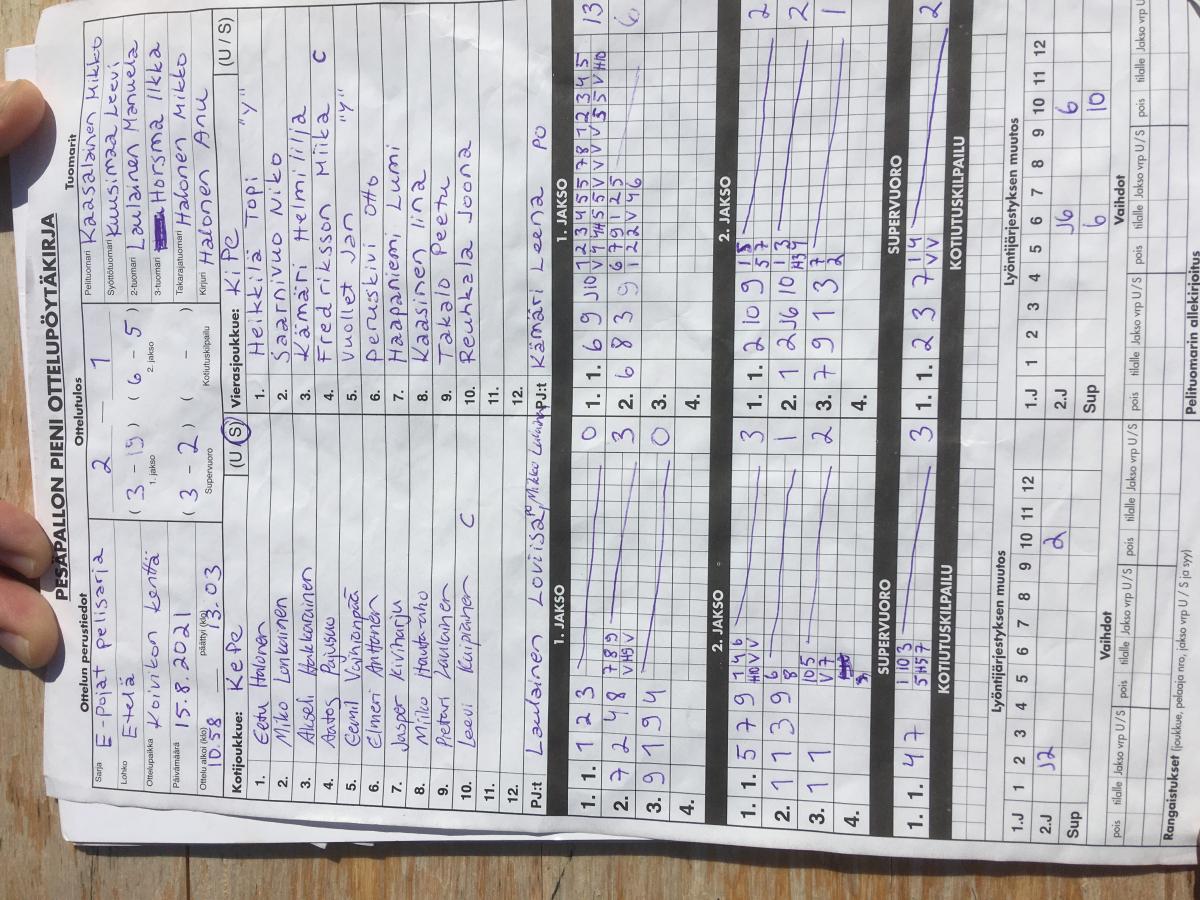 PESÄPALLON PIENI OTTELUPÖYTÄKIRJA
Ottelun perustiedot
Sarja E-pojat pelisarja
Lohko Etelä
Ottelupaikka Koivikon kenttä
Päivämäärä 15.8.2021
Ottelu alkoi (klo) 10.58 päättyi (klo) 13.03
Ottelutulos
2 — 1
(3 - 19) (6 - 5)
1. jakso 2. jakso
(3 - 2) ( - )
Supervuoro Kotiutuskilpailu
Tuomarit
Pelituomari Kaasalainen Mikko
Syöttötuomari Kuusimaa Leevi
2-tuomari Laulainen Manuela
3-tuomari Horsma Ilkka
Takarajatuomari Hakonen Mikko
Kirjuri Halonen Anu
Kotijoukkue: KePe (U/S)
1. Eetu Halonen
2. Miko Lonkainen
3. Akseli Hokkarainen
4. Aatos Pajusuo
5. Eemil Vihionpää
6. Elmeri Anttonen
7. Jasper Kiviharju
8. Miko Hautaraho
9. Pietari Laulainen
10. Leevi Kuipiainen C
11.
12.
PJ:t Laulainen Loviisa PO, Mikko
Vierasjoukkue: KiPe (U / S)
1. Heikkilä Topi "Y"
2. Saarnivuo Niko
3. Kämäri Helmi
4. Fredriksson Miika C
5. Vuollet Jan "Y"
6. Peruskivi Otto
7. Haapaniemi Lumi
8. Kaasinen Iina
9. Takalo Peetu
10. Reuhkala Joona
11.
12.
PJ:t Kämäri Leena PO
1. JAKSO
1. 1. 1 2 3 0
2. 7 2 4 8 7 8 9 3
V H9 V
3. 9 1 9 4 0
4.
1. JAKSO
1. 1. 6 9 J10 1 2 3 4 5 5 7 8 1 2 3 4 5 13
2. 6 8 3 9 6 7 9 1 2 5 6
1 2 2 V 4 6
3.
4.
2. JAKSO
1. 1. 5 7 9 1 4 6 3
H10 V V
2. 1 1 3 9 6 1
8
3. 1 1 10 5 2
V 7
4.
2. JAKSO
1. 1. 2 10 9 1 5 2
5 7
2. 1 2 J6 10 1 3 2
H3 4
3. 7 9 1 3 7 1
2
4.
SUPERVUORO
1. 1. 4 7 1 10 3 3
5 H5 7
SUPERVUORO
1. 1. 2 3 7 1 4 2
V V
KOTIUTUSKILPAILU
KOTIUTUSKILPAILU
Lyöntijärjestyksen muutos
1 2 3 4 5 6 7 8 9 10 11 12
1.J
2.J J2 2
Sup
Lyöntijärjestyksen muutos
1 2 3 4 5 6 7 8 9 10 11 12
1.J
2.J J6 6
Sup 6 10
Vaihdot
pois tilalle Jakso vrp U/S pois tilalle Jakso vrp U/S pois tilalle Jakso vrp U/S
Vaihdot
pois tilalle Jakso vrp U/S pois tilalle Jakso vrp U/S pois tilalle Jakso vrp U
Rangaistukset (joukkue, pelaaja nro, jakso vrp U / S ja syy)
Pelituomarin allekirjoitus